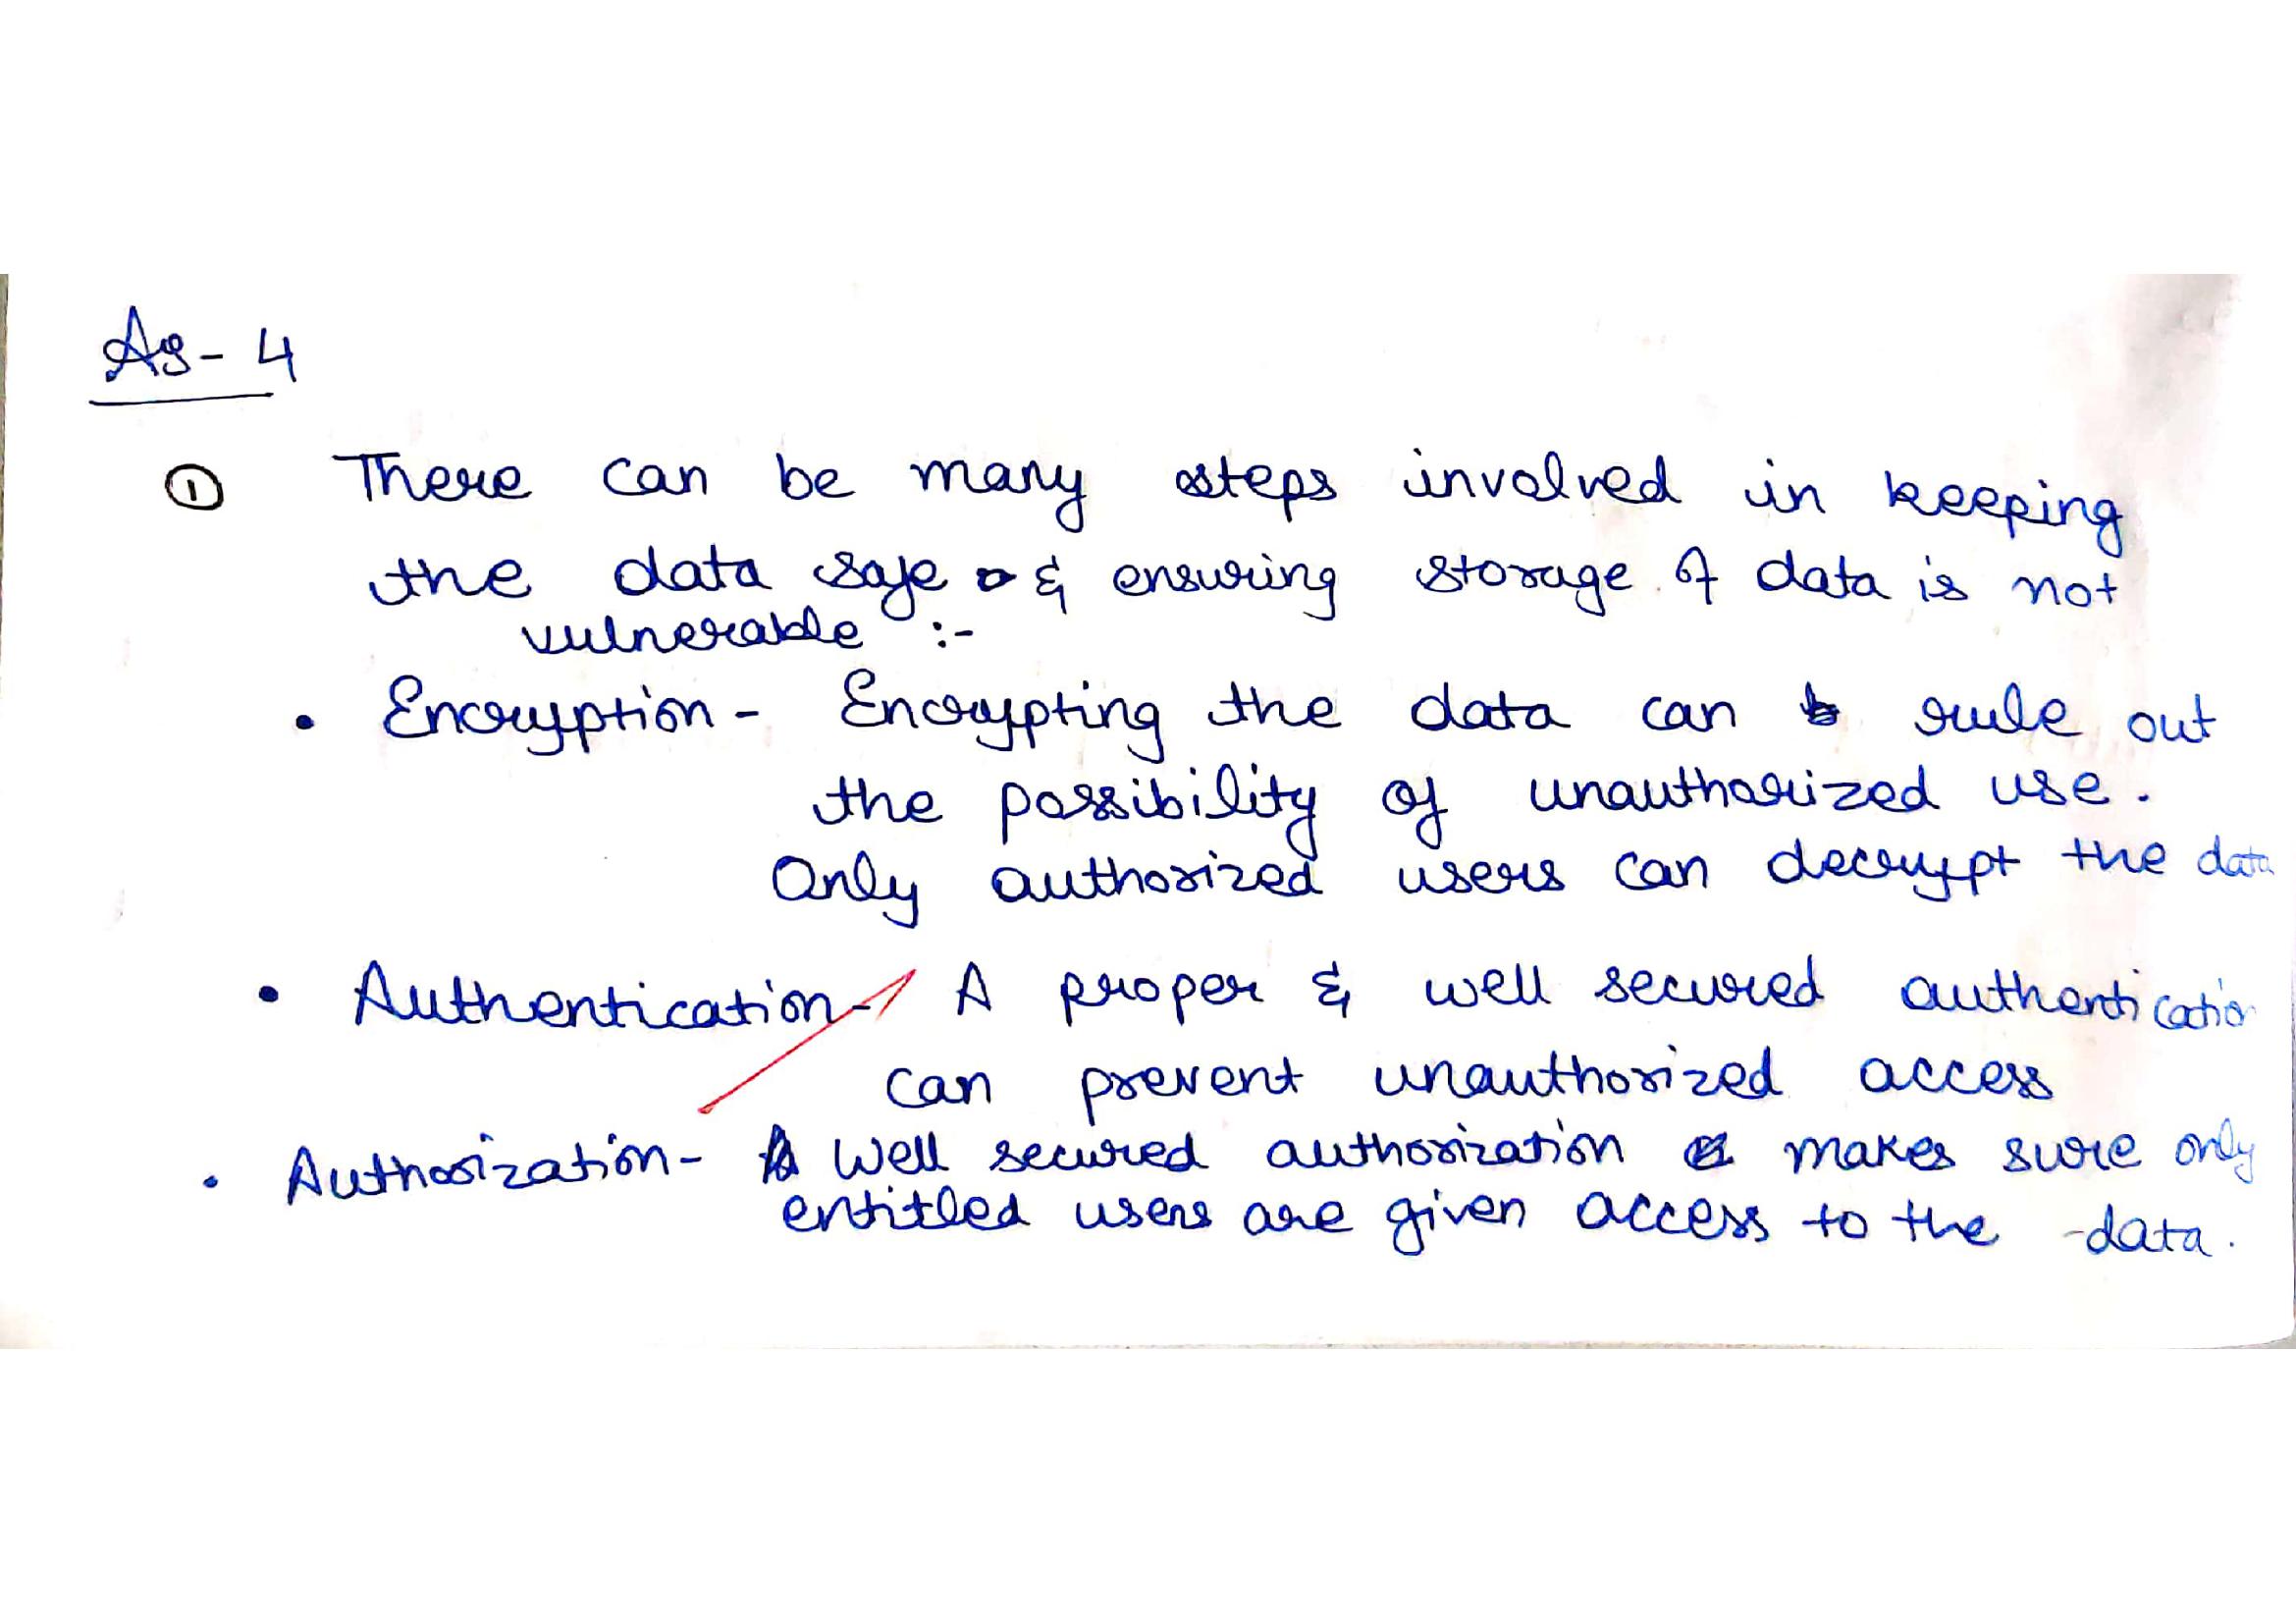 As - 4
① There can be many steps involved in keeping
the data safe & ensuring storage of data is not
vulnerable :-
• Encryption - Encrypting the data can rule out
the possibility of unauthorized use.
Only authorized users can decrypt the data
• Authentication - A proper & well secured authentication
can prevent unauthorized access
• Authorization - Well secured authorization makes sure only
entitled users are given access to the data.